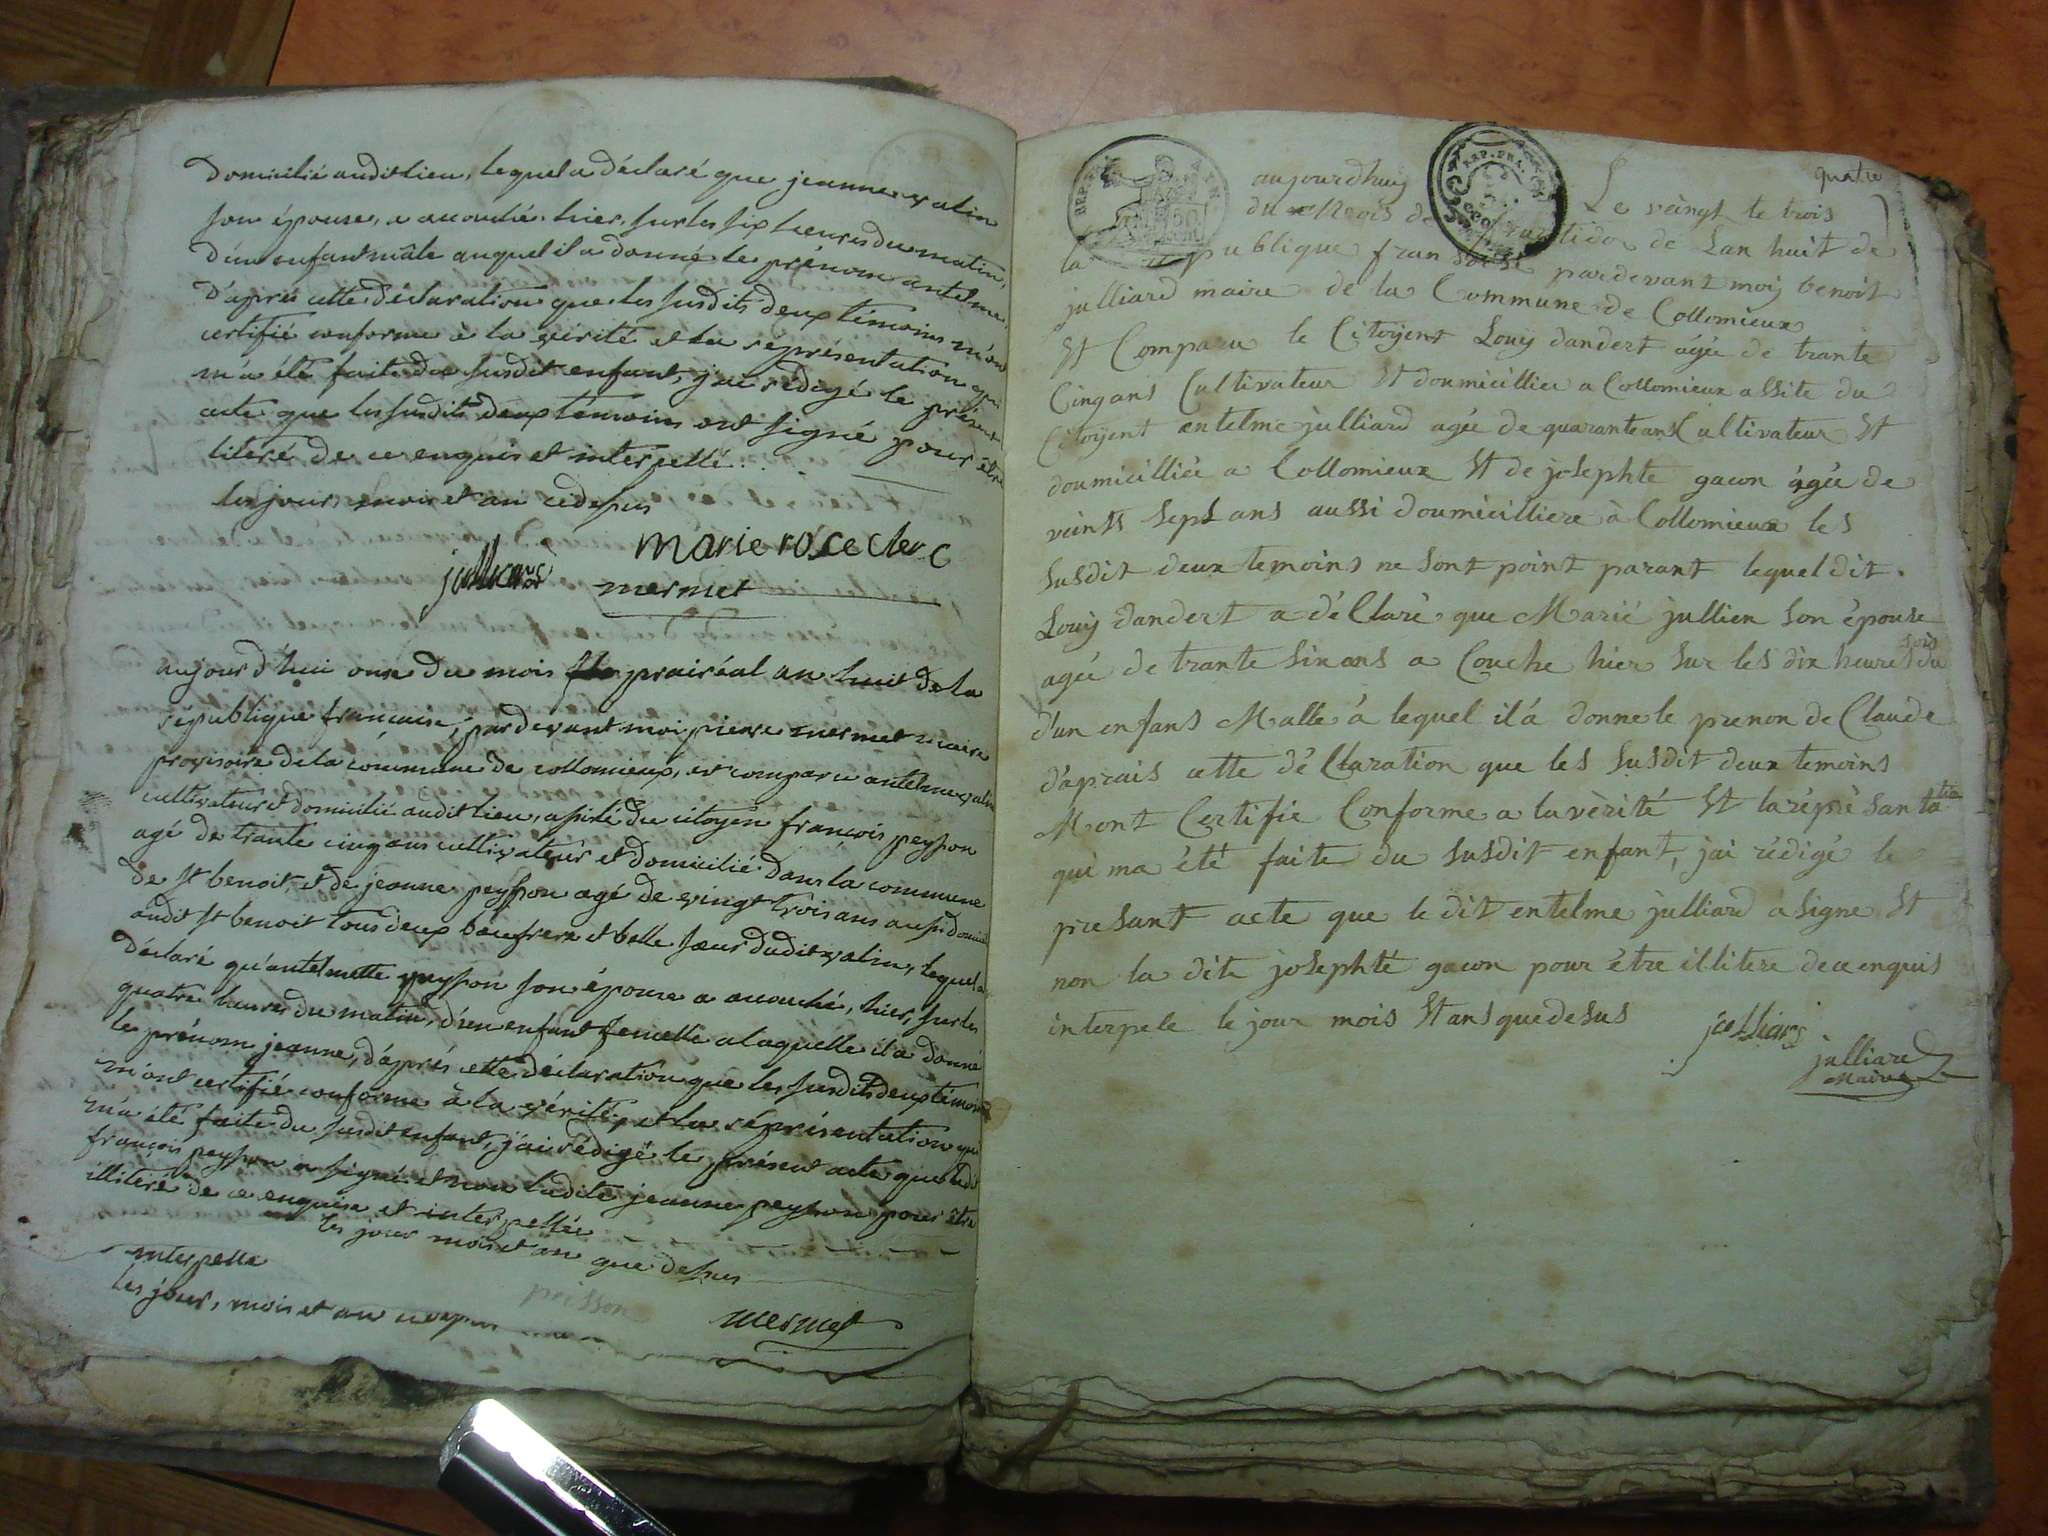 Domicilié audit lieu, lequel a déclaré que jeanne valin
son épouse, a accouché, hier, sur les six heures du matin
D'un enfant mâle auquel il a donné le prénom antelme,
D'après cette déclaration que les susdits deux témoins m'ont
certifié conforme à la vérité et la représentation qui
m'a été faite du susdit enfant, j'ai rédigé le présent
acte que les susdits deux témoins ont signé pour être
literé de ce enquis et interpellé
les jour, mois et an cidessus
marie rose clerc
julliard
mermet
aujourd'hui onze du mois prairéal an huit de la
république francaise, pardevant moi pierre mermet maire
provisoire de la commune de collomieux, est comparu antelme valin
cultivateur et domicilié audit lieu, assisté du citoyen françois peysson
agé de trante cinq ans cultivateur et domicilié dans la commune
de st benoit, et de jeanne peysson agé de vingt trois ans aussi domicilié
audit st benoit tous deux baufrere et belle sœur dudit valin, lequel a
déclaré qu'antelmette peysson son épouse a accouché, hier, sur les
quatre heures du matin, d'un enfant femelle a laquelle il a donné
le prénom jeanne, d'après cette déclaration que les susdits deux témoins
m'ont certifié conforme à la vérité, et la réprésentation qui
m'a été faite du susdit enfant, j'ai rédigé le présent acte que ledit
françois peysson a signé et non ladite jeanne peysson pour être
illiteré de ce enquise et interpellée
les jour mois et an que dessus
interpellé
les jour, mois et an
peisson
mermet
quatre
aujourdhuy Le veingt te trois
du Mois de fructidor de Lan huit de
la republique fransoise pardevant moy benoit
julliard maire de la Commune de Collomieux
St Comparu le Citoyent Louy dandert agée de trante
Cinq ans Cultivateur St doumicillier a Collomieux assite du
Citoyent entelme julliard agée de quarante ans Cultivateur St
doumicilliée a Collomieux St de josephte gacon âgée de
veints sept ans aussi doumicilliere à Collomieux les
susdit deux temoins ne sont point parant lequel dit
Louy dandert a déClaré que Marie jullien son épouse
agée de trante sixans a Couche hier sur les dix heures du soir
d'un enfans Malle à lequel il a donne le prenon de Claude
d'aprais cette déClaration que les susdit deux temoins
Mont Certifie Conforme a la vèrité St la réprésantation
qui ma été faite du susdit enfant, jai rédigé le
presant acte que le dit entelme julliard a signe St
non la dite josephté gacon pour être illitere de ce enquis
interpele le jour mois St ans que desus
julliard
julliard
Maire